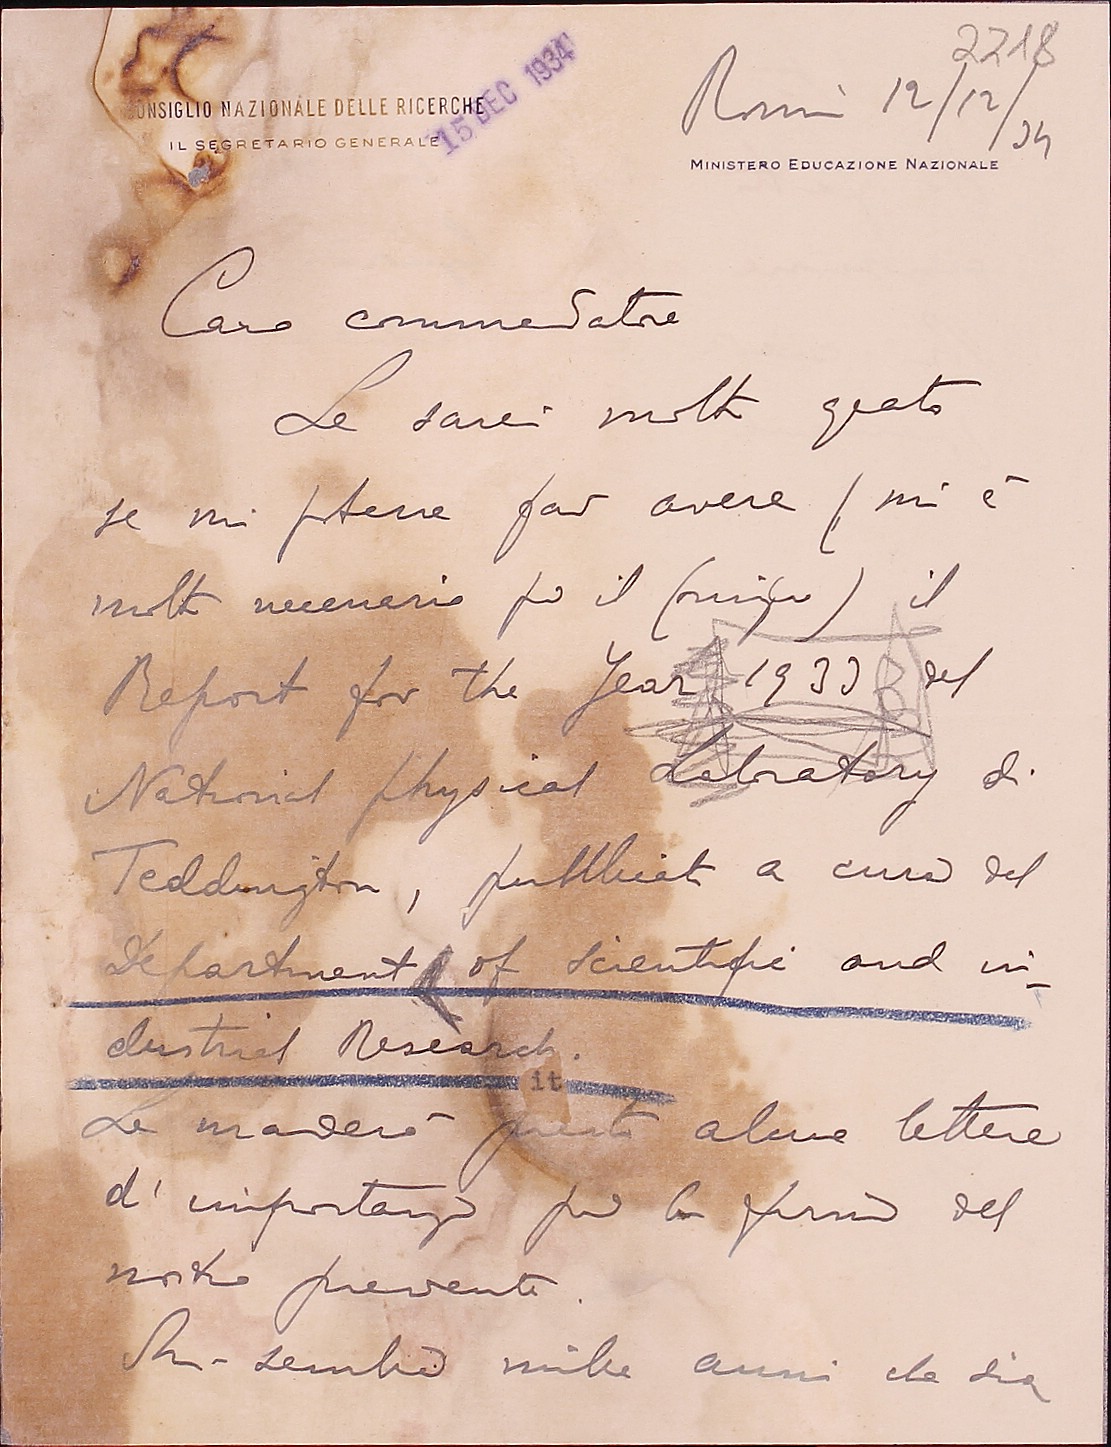 2218
15 DEC 1934
Roma 12/12/34
CONSIGLIO NAZIONALE DELLE RICERCHE
IL SEGRETARIO GENERALE
MINISTERO EDUCAZIONE NAZIONALE
Caro commendatore
Le sarei molto grato
se mi potesse far avere (mi è
molto necessario per il) il
Report for the Year 1933 del
National physical Laboratory di
Teddington, pubblicato a cura del
Department of Scientific and in-
dustrial Research.
it
Le manderò presto alcune lettere
d'importanza per la firma del
nostro presidente.
Mi sembra mille anni che sia